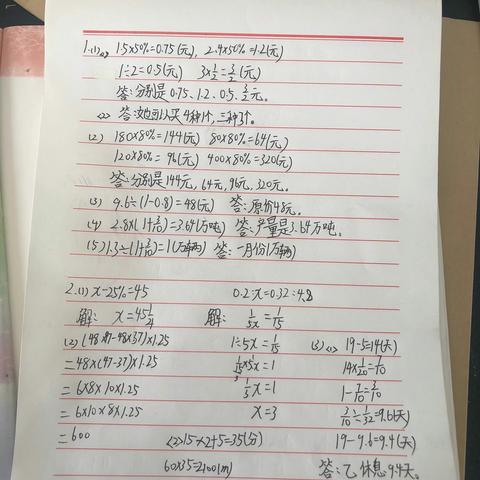 1.(1)<1> 1.5×50%=0.75(元), 2.4×50%=1.2(元)
1÷2=0.5(元) 3×½=3/2(元)
答:分别是0.75、1.2、0.5、3/2元。
<2> 答:她可以买4种1个,三种3个。
(2) 180×80%=144(元) 80×80%=64(元)
120×80%=96(元) 400×80%=320(元)
答:分别是144元,64元,96元,320元。
(3) 9.6÷(1-0.8)=48(元) 答:原价48元。
(4) 2.8×(1+3/10)=3.64(万吨) 答:产量是3.64万吨。
(5) 1.3÷(1+3/10)=1(万辆) 答:一月份1(万辆)
2.(1) x-25%=45 0.2:x=0.32:4.8
解: x=45¼ 解: 1/5x=1/15
(2) (48×47-48×37)×1.25 1÷5x=1/15 (3)<1> 19-5=14(天)
=48×(47-37)×1.25 1/15×5x=1 14×1/20=7/10
=6×8×10×1.25 1/3x=1 1-7/10=3/10
=6×10×8×1.25 x=3 3/10÷1/32=9.6(天)
=600 <2>15×2+5=35(分) 19-9.6=9.4(天)
60×35=2100(m) 答:乙休息9.4天。